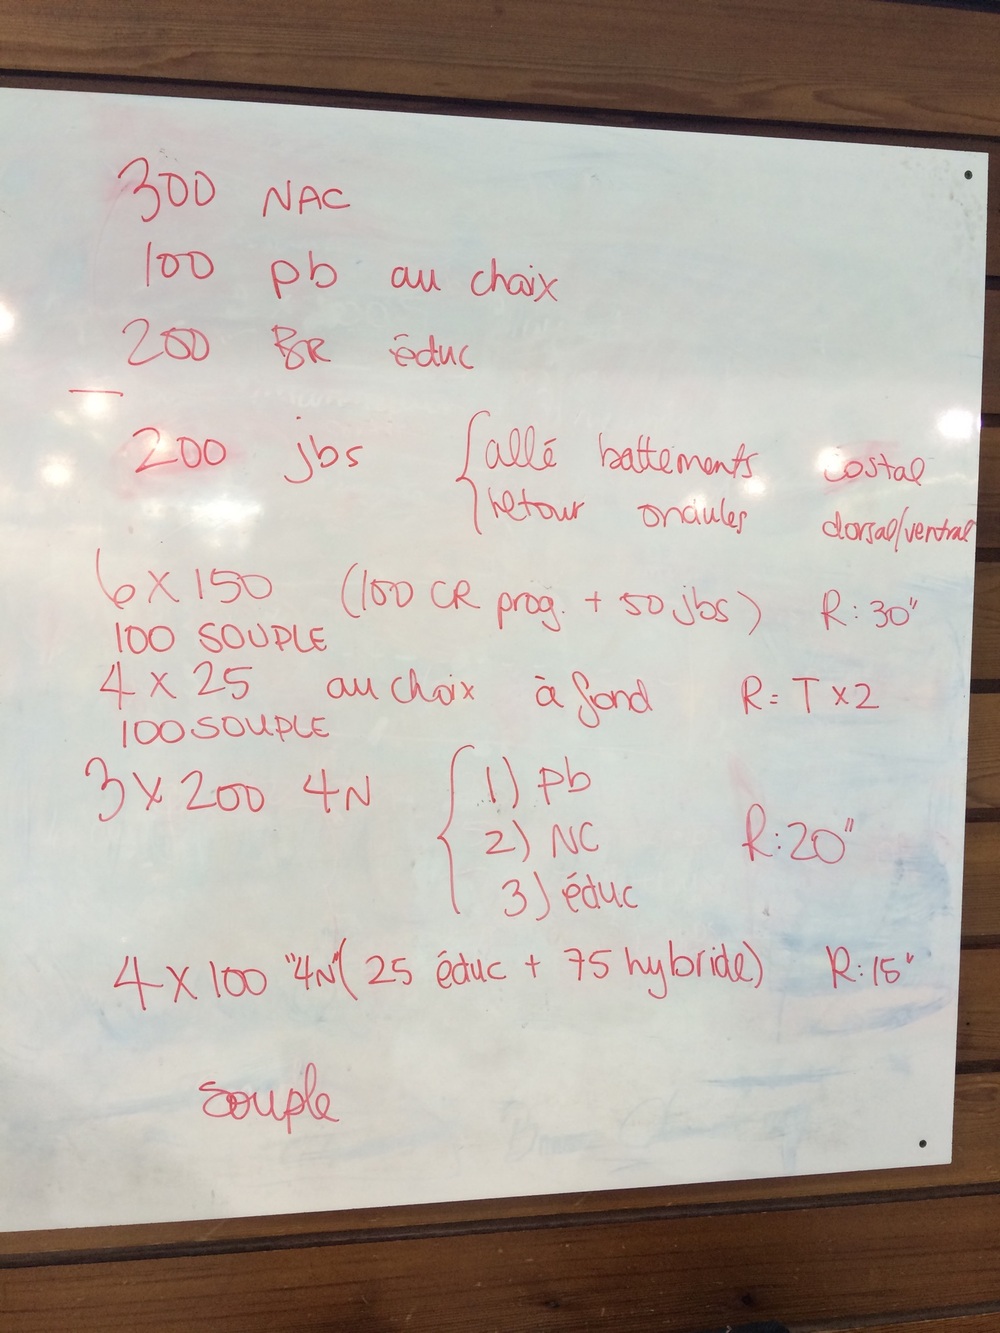 300 NAC
100 pb au choix
200 BR éduc
—
200 jbs { allé battements costal
retour ondulés dorsal/ventral
6 X 150 (100 CR prog. + 50 jbs) R: 30"
100 SOUPLE
4 X 25 au choix à fond R = T x 2
100 SOUPLE
3 X 200 4N { 1) pb
2) NC R: 20"
3) éduc
4 X 100 "4N" (25 éduc + 75 hybride) R: 15"
souple